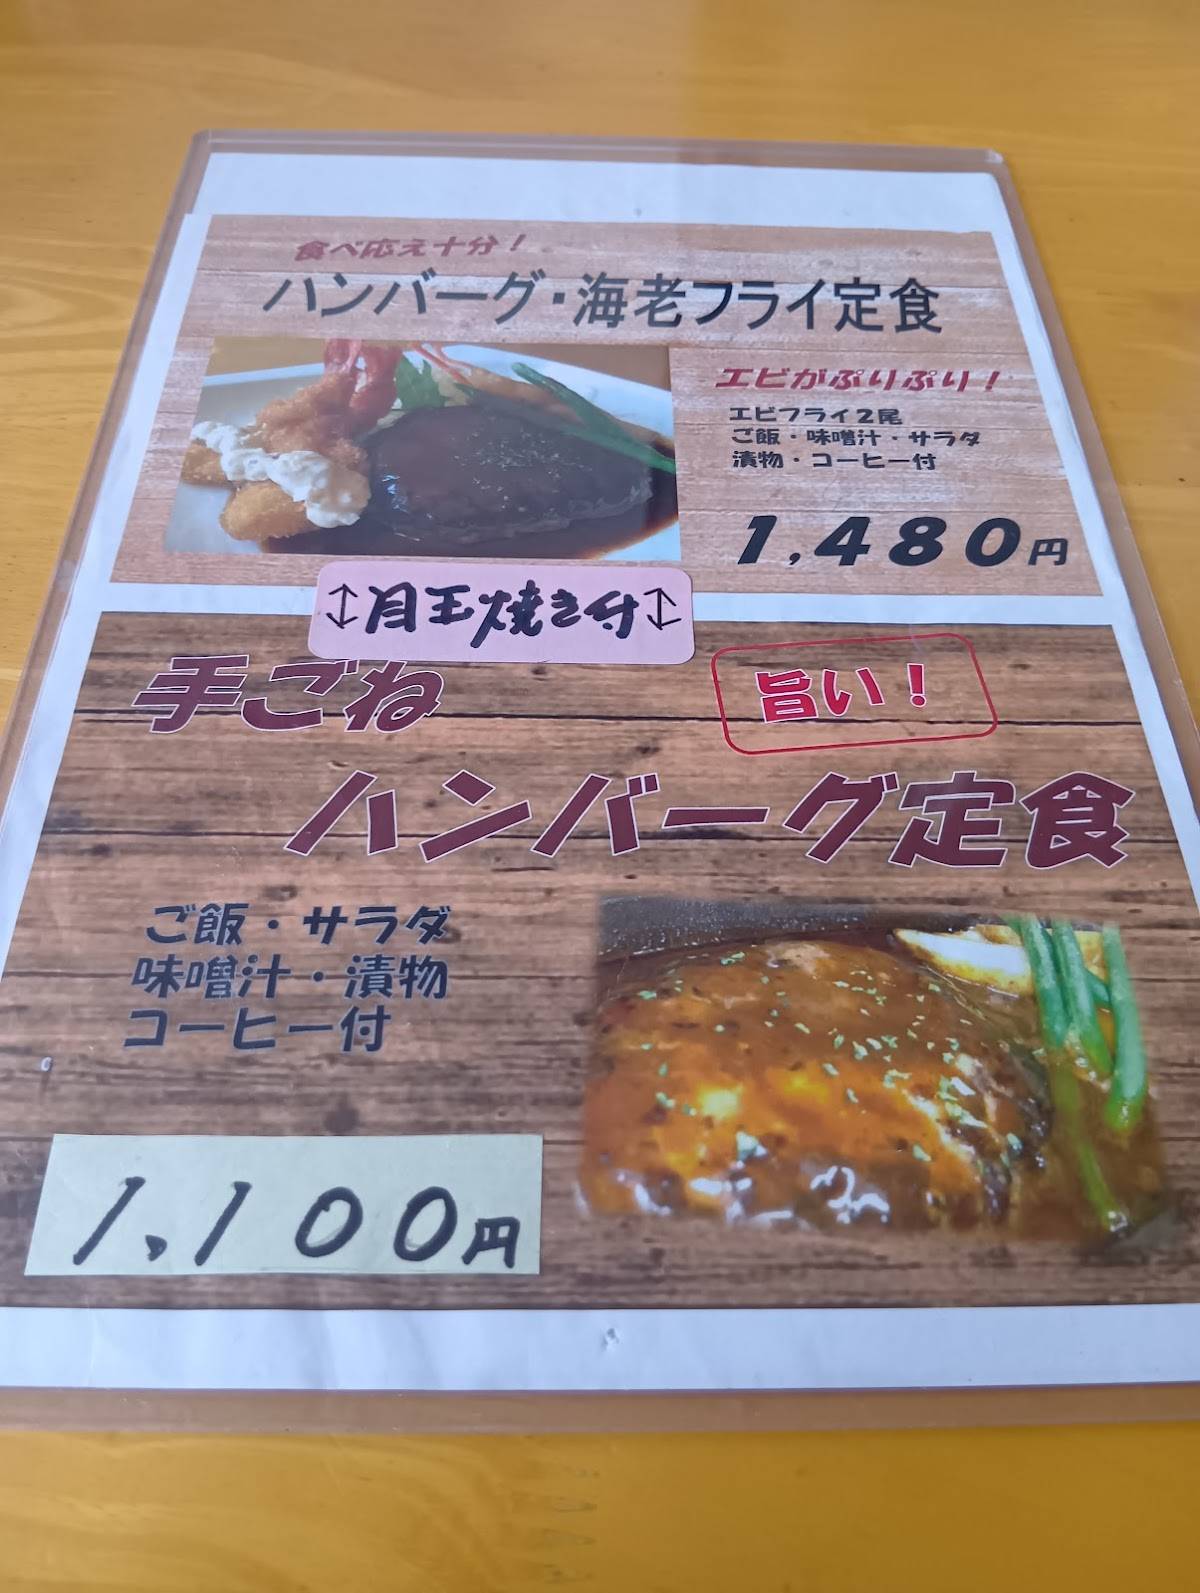 食べ応え十分！
ハンバーグ・海老フライ定食
エビがぷりぷり！
エビフライ2尾
ご飯・味噌汁・サラダ
漬物・コーヒー付
1,480円
↕月玉焼き付↕
手ごね
旨い！
ハンバーグ定食
ご飯・サラダ
味噌汁・漬物
コーヒー付
1,100円